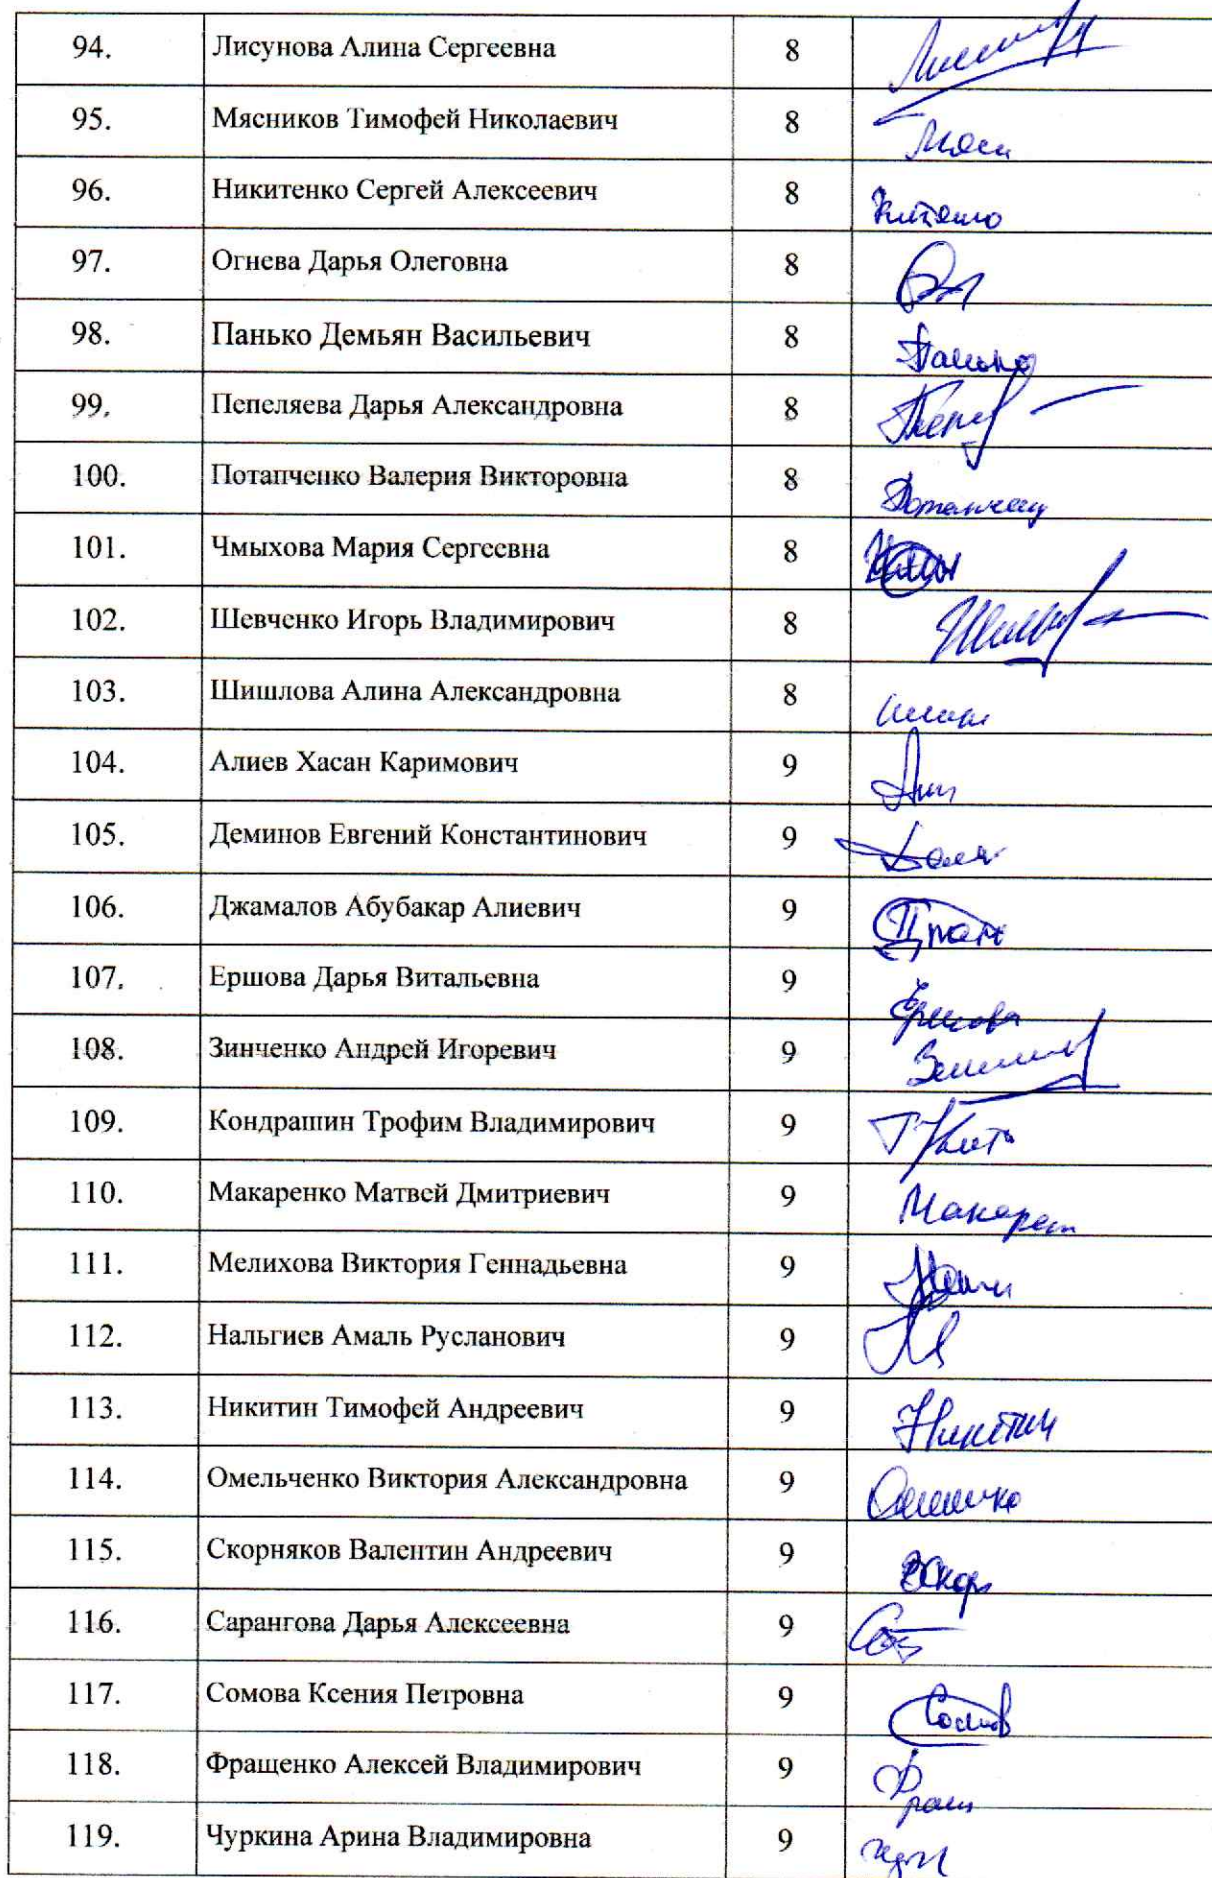 94. Лисунова Алина Сергеевна 8
95. Мясников Тимофей Николаевич 8
96. Никитенко Сергей Алексеевич 8
97. Огнева Дарья Олеговна 8
98. Панько Демьян Васильевич 8 Панько
99. Пепеляева Дарья Александровна 8
100. Потапченко Валерия Викторовна 8
101. Чмыхова Мария Сергеевна 8
102. Шевченко Игорь Владимирович 8
103. Шишлова Алина Александровна 8
104. Алиев Хасан Каримович 9
105. Деминов Евгений Константинович 9
106. Джамалов Абубакар Алиевич 9
107. Ершова Дарья Витальевна 9 Ершова
108. Зинченко Андрей Игоревич 9
109. Кондрашин Трофим Владимирович 9
110. Макаренко Матвей Дмитриевич 9
111. Мелихова Виктория Геннадьевна 9
112. Нальгиев Амаль Русланович 9
113. Никитин Тимофей Андреевич 9 Никитин
114. Омельченко Виктория Александровна 9
115. Скорняков Валентин Андреевич 9
116. Сарангова Дарья Алексеевна 9
117. Сомова Ксения Петровна 9
118. Фращенко Алексей Владимирович 9
119. Чуркина Арина Владимировна 9